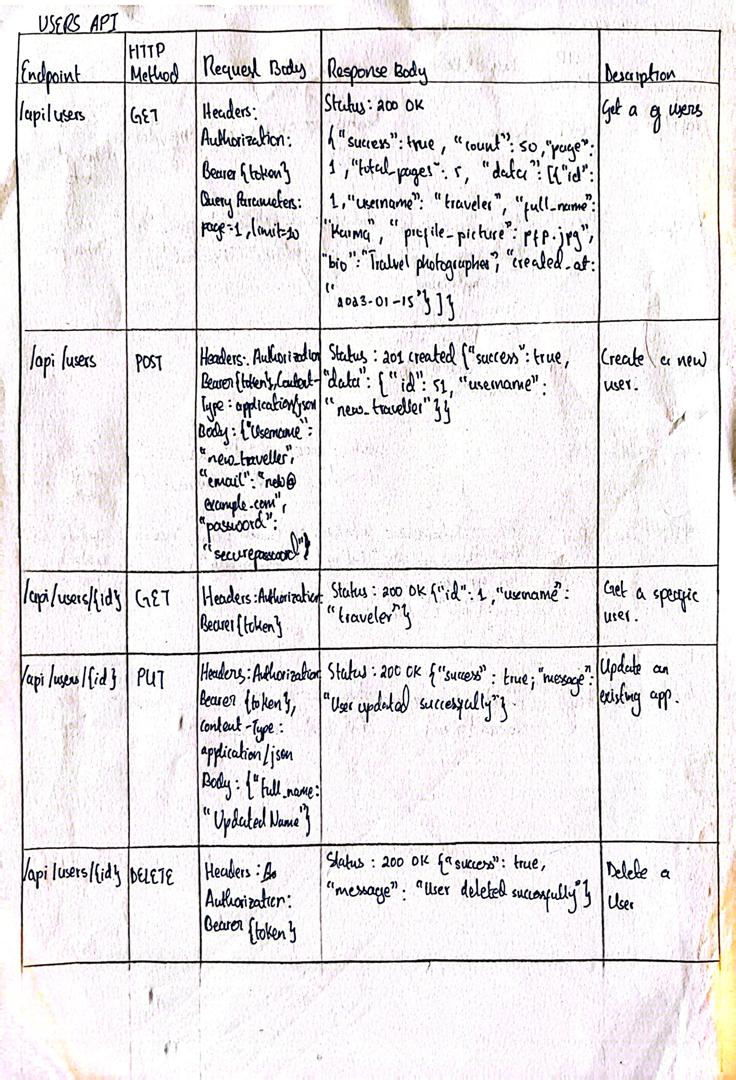 USERS API
Endpoint
HTTP
Method
Request Body
Response Body
Description
/api/users
GET
Headers:
Authorization:
Bearer {token}
Query Parameters:
page=1, limit=10
Status: 200 OK
{"success": true, "count": 50, "page":
1, "total_pages": 5, "data": [{"id":
1, "username": "traveler", "full_name":
"Karma", "profile_picture": pfp.jpg",
"bio": "Tralvel photographer", "created_at:
"
"2023-01-15"}]}
Get a of users
/api/users
POST
Headers: Authorization
Bearer {token}, Content-
Type: application/json
Body: {"Username":
"new_traveller",
"email": "new@
example.com",
"password":
"securepassword"}
Status: 201 created {"success": true,
"data": {"id": 51, "username":
"new_traveller"}}
Create a new
user.
/api/users/{id}
GET
Headers: Authorization:
Bearer {token}
Status: 200 OK {"id": 1, "username":
"traveler"}
Get a specific
user.
/api/users/{id}
PUT
Headers: Authorization
Bearer {token},
content-Type:
application/json
Body: {"full_name:
"Updated Name"}
Status: 200 OK {"success": true, "message":
"User updated successfully"}
Update an
existing app.
/api/users/{id}
DELETE
Headers:
Authorization:
Bearer {token}
Status: 200 OK {"success": true,
"message": "User deleted successfully"}
Delete a
User